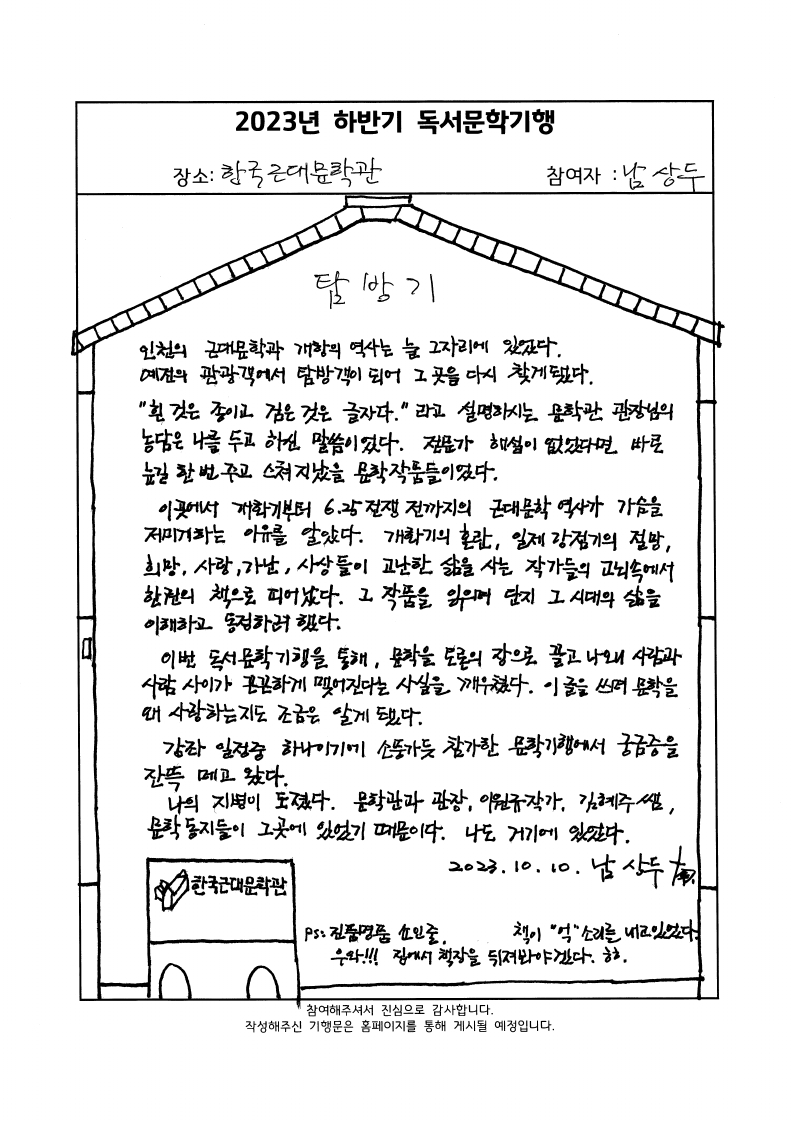 2023년 하반기 독서문학기행
장소: 한국근대문학관 참여자 : 남 상두
탐 방 기
인천의 근대문학과 개항의 역사는 늘 그자리에 있었다.
예전의 관광객에서 탐방객이 되어 그 곳을 다시 찾게됐다.
"흰 것은 종이고 검은 것은 글자다." 라고 설명하시는 문학관 관장님의
농담은 나를 두고 하신 말씀이었다. 전문가 해설이 없었다면 빠른
눈길 한 번 주고 스쳐 지났을 문학작품들이었다.
이곳에서 개화기부터 6.25 전쟁 전까지의 근대문학 역사가 가슴을
저미게하는 이유를 알았다. 개화기의 혼란, 일제 강점기의 절망,
희망, 사랑, 가난, 사상들이 고난한 삶을 사는 작가들의 고뇌속에서
한권의 책으로 피어났다. 그 작품을 읽으며 단지 그 시대의 삶을
이해하고 동정하려 했다.
이번 독서문학기행을 통해, 문학을 토론의 장으로 끌고 나와 사람과
사람 사이가 끈끈하게 맺어진다는 사실을 깨우쳤다. 이 글을 쓰며 문학을
왜 사랑하는지도 조금은 알게 됐다.
강좌 일정중 하나이기에 소풍가듯 참가한 문학기행에서 궁금증을
잔뜩 메고 왔다.
나의 지병이 도졌다. 문학관과 관장, 이원규작가, 김혜주쌤,
문학 동지들이 그곳에 있었기 때문이다. 나도 거기에 있었다.
2023. 10. 10. 남 상두
한국근대문학관
PS: 진품명품 소인줄, 책이 "억"소리를 내고있었다.
우와!!! 집에서 책장을 뒤져봐야겠다. ㅎㅎ.
참여해주셔서 진심으로 감사합니다.
작성해주신 기행문은 홈페이지를 통해 게시될 예정입니다.